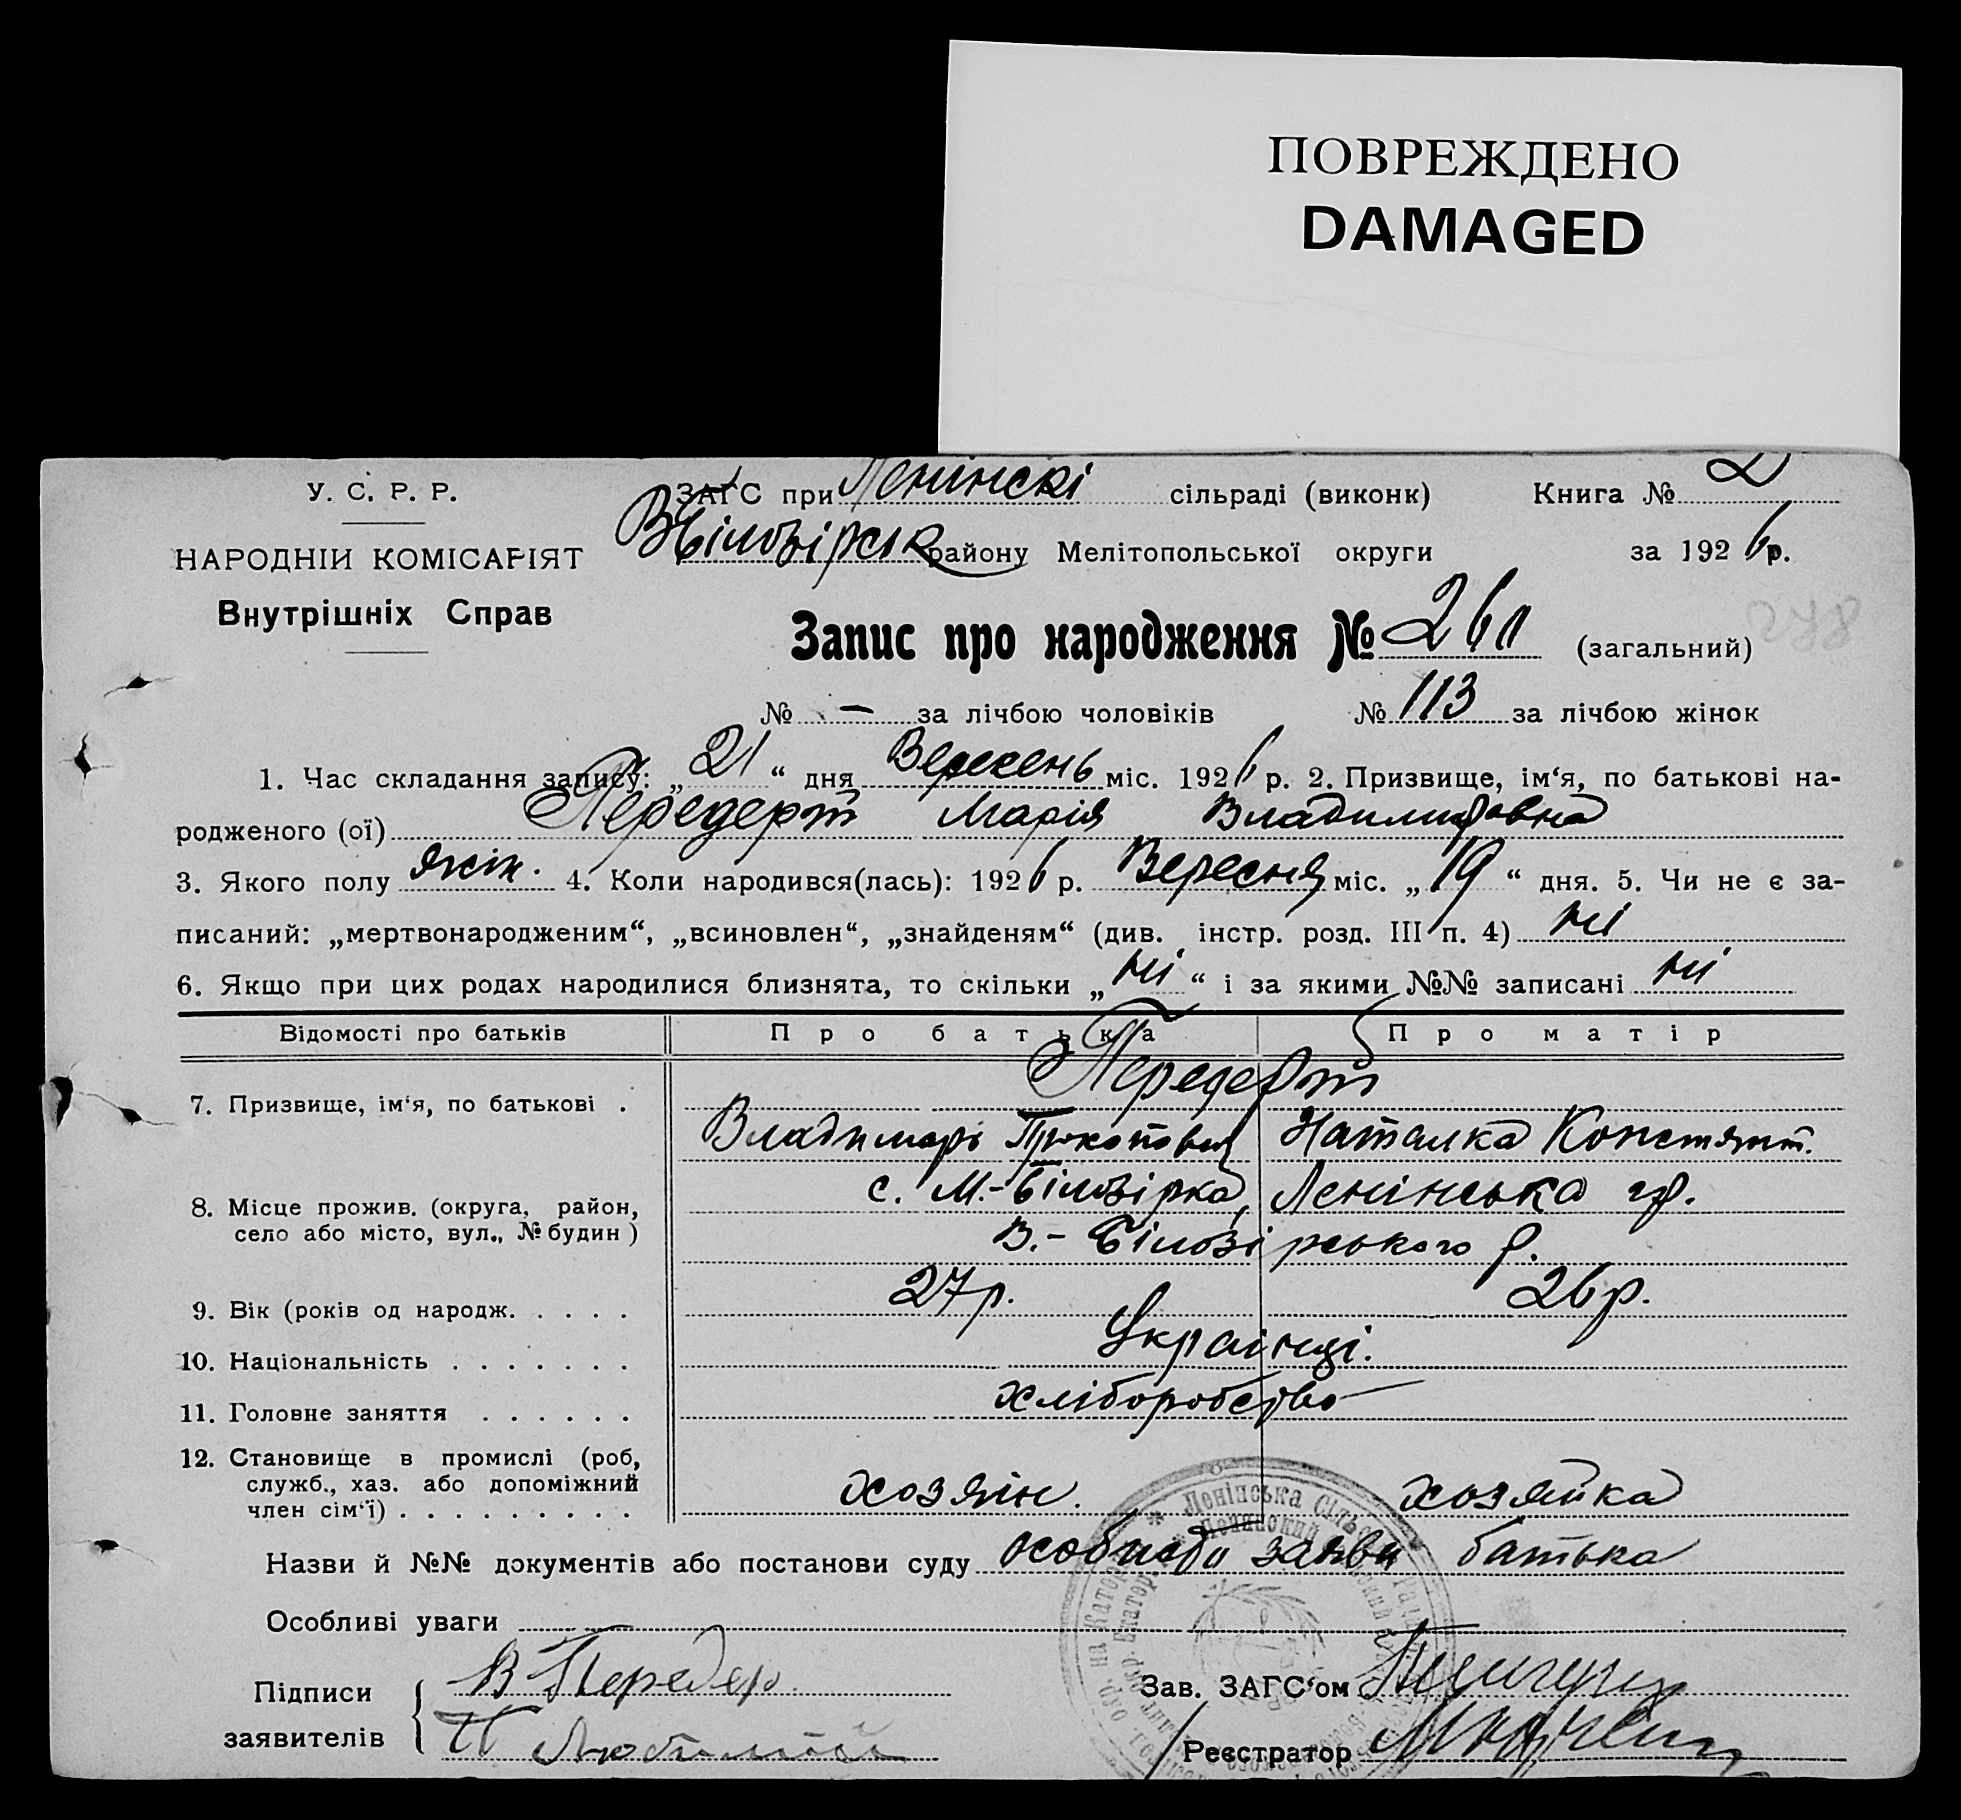 ПОВРЕЖДЕНО
DAMAGED
У. С. Р. Р.
ЗАГС при Ленінскі сільраді (виконк) Книга № 2
НАРОДНІИ КОМІСАРІЯТ
В Білозірськ району Мелітопольської округи за 1926 р.
Внутрішніх Справ
Запис про народження № 26 (загальний) 278
№ — за лічбою чоловіків № 113 за лічбою жінок
1. Час складання запису: „21“ дня Вересень міс. 1926 р. 2. Призвище, ім‘я, по батькові на-
родженого (ої) Передерт Марія Владимировна
3. Якого полу жін. 4. Коли народився(лась): 1926 р. Вересня міс. „19“ дня. 5. Чи не є за-
писаний: „мертвонародженим“, „всиновлен“, „знайденям“ (див. інстр. розд. III п. 4) ні
6. Якщо при цих родах народилися близнята, то скільки „ні“ і за якими №№ записані ні
Відомості про батьків Про батька Про матір
Передерт
7. Призвище, ім‘я, по батькові .
Владимарь Прокопович Наталка Констянт.
с. М.-Білозірка, Ленінська
8. Місце прожив. (округа, район,
село або місто, вул., № будин )
В.-Білозірського р.
9. Вік (років од народж. . . . . 27 р. 26 р.
10. Національність . . . . . . . Українці.
11. Головне заняття . . . . . . хліборобство
12. Становище в промислі (роб,
служб., хаз. або допоміжний
член сім‘ї) . . . . . . . . . хозяін. хозяйка
Назви й №№ документів або постанови суду особисто заяви батька
Особливі уваги
Підписи
заявителів
В Передер
Зав. ЗАГС‘ом
Реєстратор
Ленінська Сільс